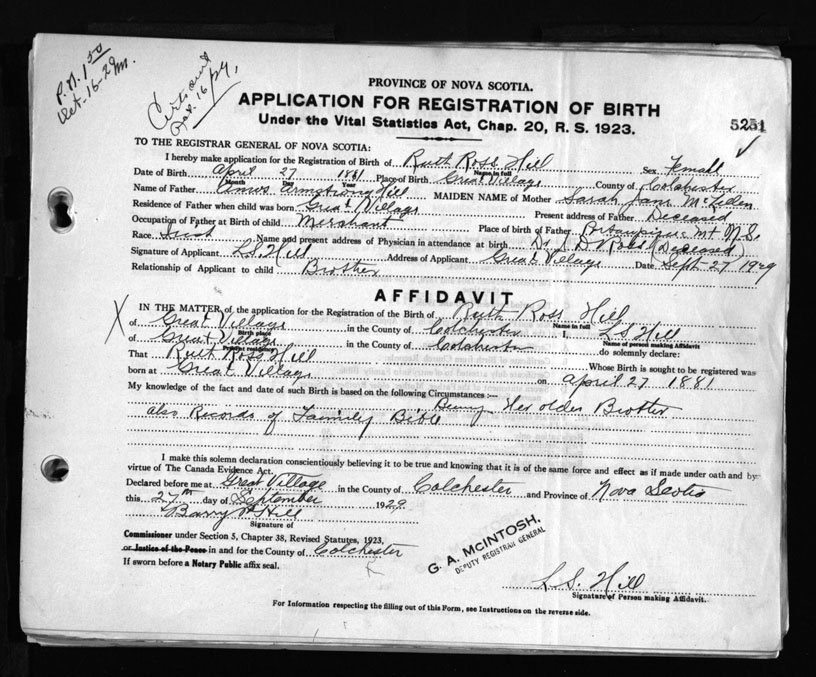 P.N. 1.50
Oct-16-29
16/29
PROVINCE OF NOVA SCOTIA.
APPLICATION FOR REGISTRATION OF BIRTH
Under the Vital Statistics Act, Chap. 20, R. S. 1923.
5251
TO THE REGISTRAR GENERAL OF NOVA SCOTIA:
I hereby make application for the Registration of Birth of Ruth Ross Hill Sex Female
Name in full
Date of Birth April 27 1881 Place of Birth Great Village County of Colchester
Month Day Year
Name of Father Armstrong Hill MAIDEN NAME of Mother Sarah Jane McLellen
Residence of Father when child was born Great Village Present address of Father Deceased
Occupation of Father at Birth of child Merchant Place of birth of Father Mt N.S.
Race Name and present address of Physician in attendance at birth Dr (Deceased)
Signature of Applicant L.S. Hill Address of Applicant Great Village Date Sept-27 1929
Relationship of Applicant to child Brother
AFFIDAVIT
IN THE MATTER of the application for the Registration of the Birth of Ruth Ross Hill
Name in full
of Great Village in the County of Colchester I, L S Hill
Birth place Name of person making Affidavit
of Great Village in the County of Colchester do solemnly declare:
That Ruth Ross Hill Whose Birth is sought to be registered was
born at Great Village on April 27 1881
My knowledge of the fact and date of such Birth is based on the following Circumstances :— Being Her older Brother
also Records of Family Bible
I make this solemn declaration conscientiously believing it to be true and knowing that it is of the same force and effect as if made under oath and by
virtue of The Canada Evidence Act.
Declared before me at Great Village in the County of Colchester and Province of Nova Scotia
this 27th day of September 1929
Barry Hill
Signature of
Commissioner under Section 5, Chapter 38, Revised Statutes, 1923,
or Justice of the Peace in and for the County of Colchester
If sworn before a Notary Public affix seal.
G. A. McINTOSH,
DEPUTY REGISTRAR GENERAL
L. S. Hill
Signature of Person making Affidavit.
For Information respecting the filling out of this Form, see Instructions on the reverse side.